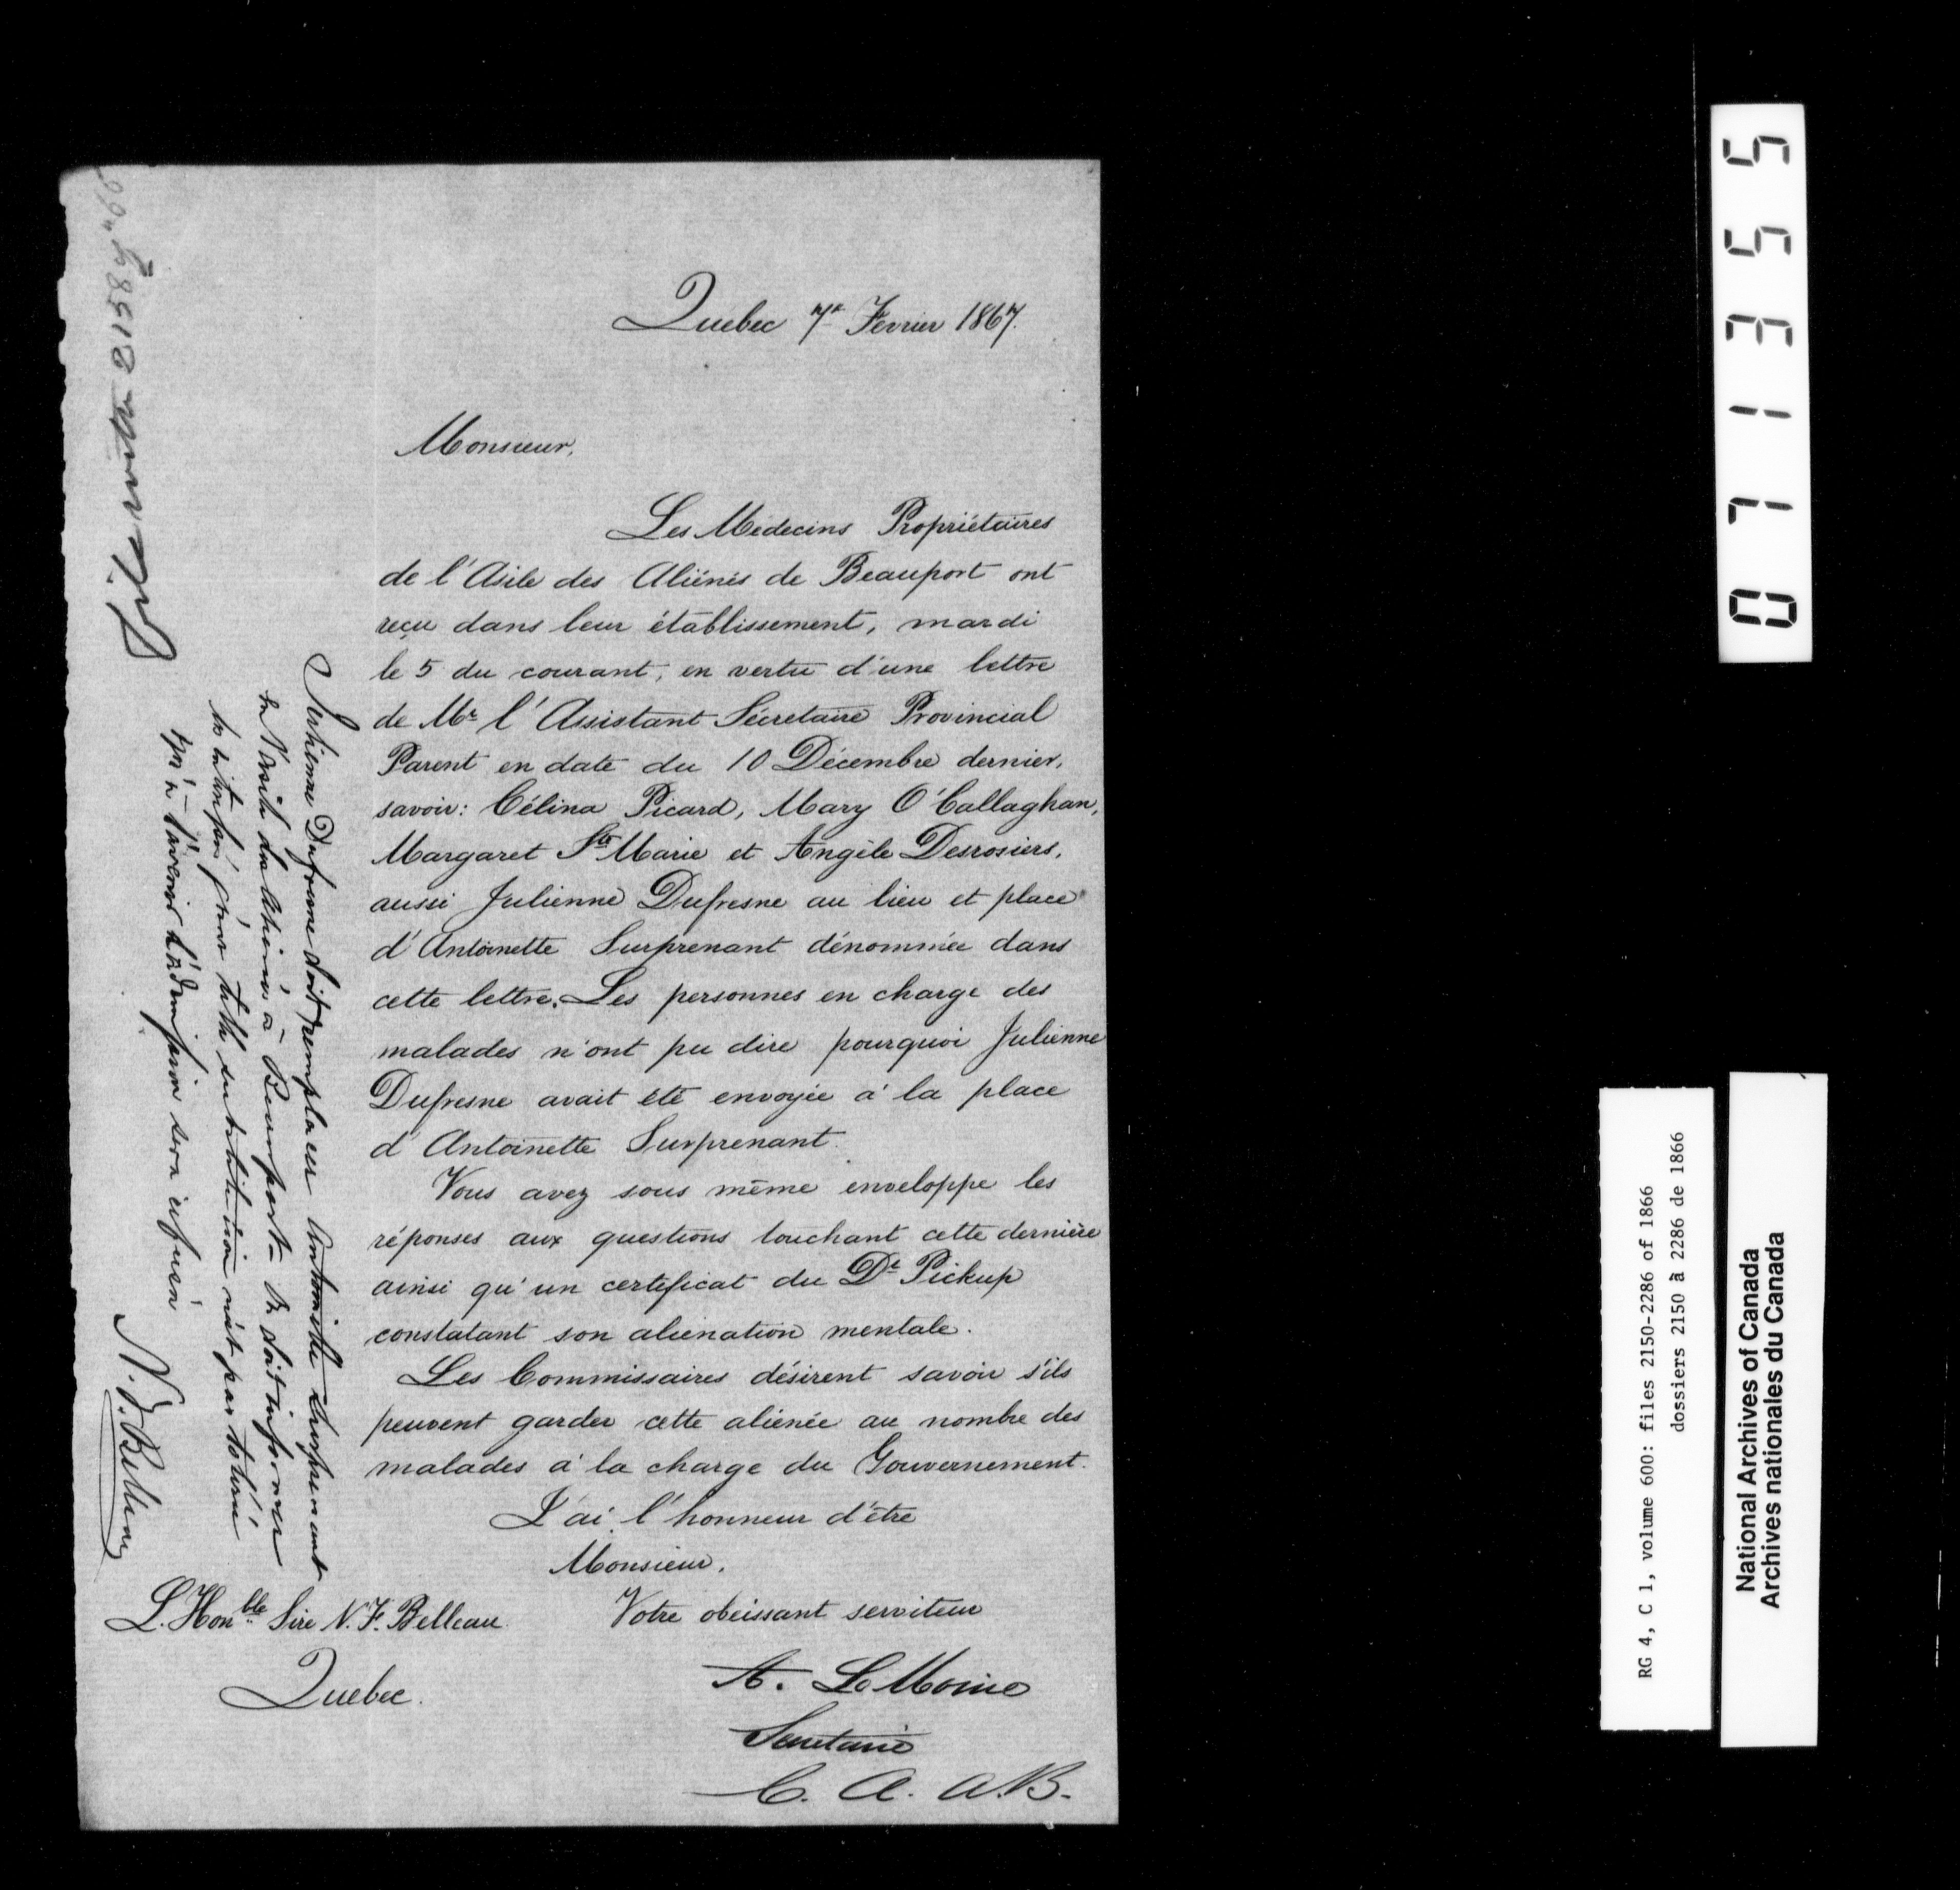 Quebec 7e Fevrier 1867.
Monsieur,
Les Médecins Propriétaires
de l'Asile des Aliénés de Beauport ont
reçu dans leur établissement, mardi
le 5 du courant, en vertu d'une lettre
de Mr l'Assistant Sécretaire Provincial
Parent en date du 10 Décembre dernier,
savoir: Célina Picard, Mary O'Callaghan,
Margaret Ste Marie et Angèle Desrosiers,
aussi Julienne Dufresne au lieu et place
d'Antoinette Surprenant dénommée dans
cette lettre. Les personnes en charge des
malades n'ont pu dire pourquoi Julienne
Dufresne avait été envoyée à la place
d'Antoinette Surprenant.
Vous avez sous même enveloppe les
réponses aux questions touchant cette dernière
ainsi qu'un certificat du Dr Pickup
constatant son aliénation mentale.
Les Commissaires désirent savoir s'ils
peuvent garder cette aliénée au nombre des
malades à la charge du Gouvernement.
J'ai l'honneur d'être
Monsieur,
Votre obéissant serviteur
A. LeMoine
Secretaire
C. A. A. B.
L'Honble Sire N. F. Belleau
Quebec.
File with 2158
Julienne Dufresne doit remplacer Antoinette Surprenant
à Beauport - On doit informer
telle substitution n'est pas
qu'à l'avenir l'admission sera refusée
N. F. Belleau
071355
RG 4, C 1, volume 600: files 2150-2286 of 1866
dossiers 2150 à 2286 de 1866
National Archives of Canada
Archives nationales du Canada